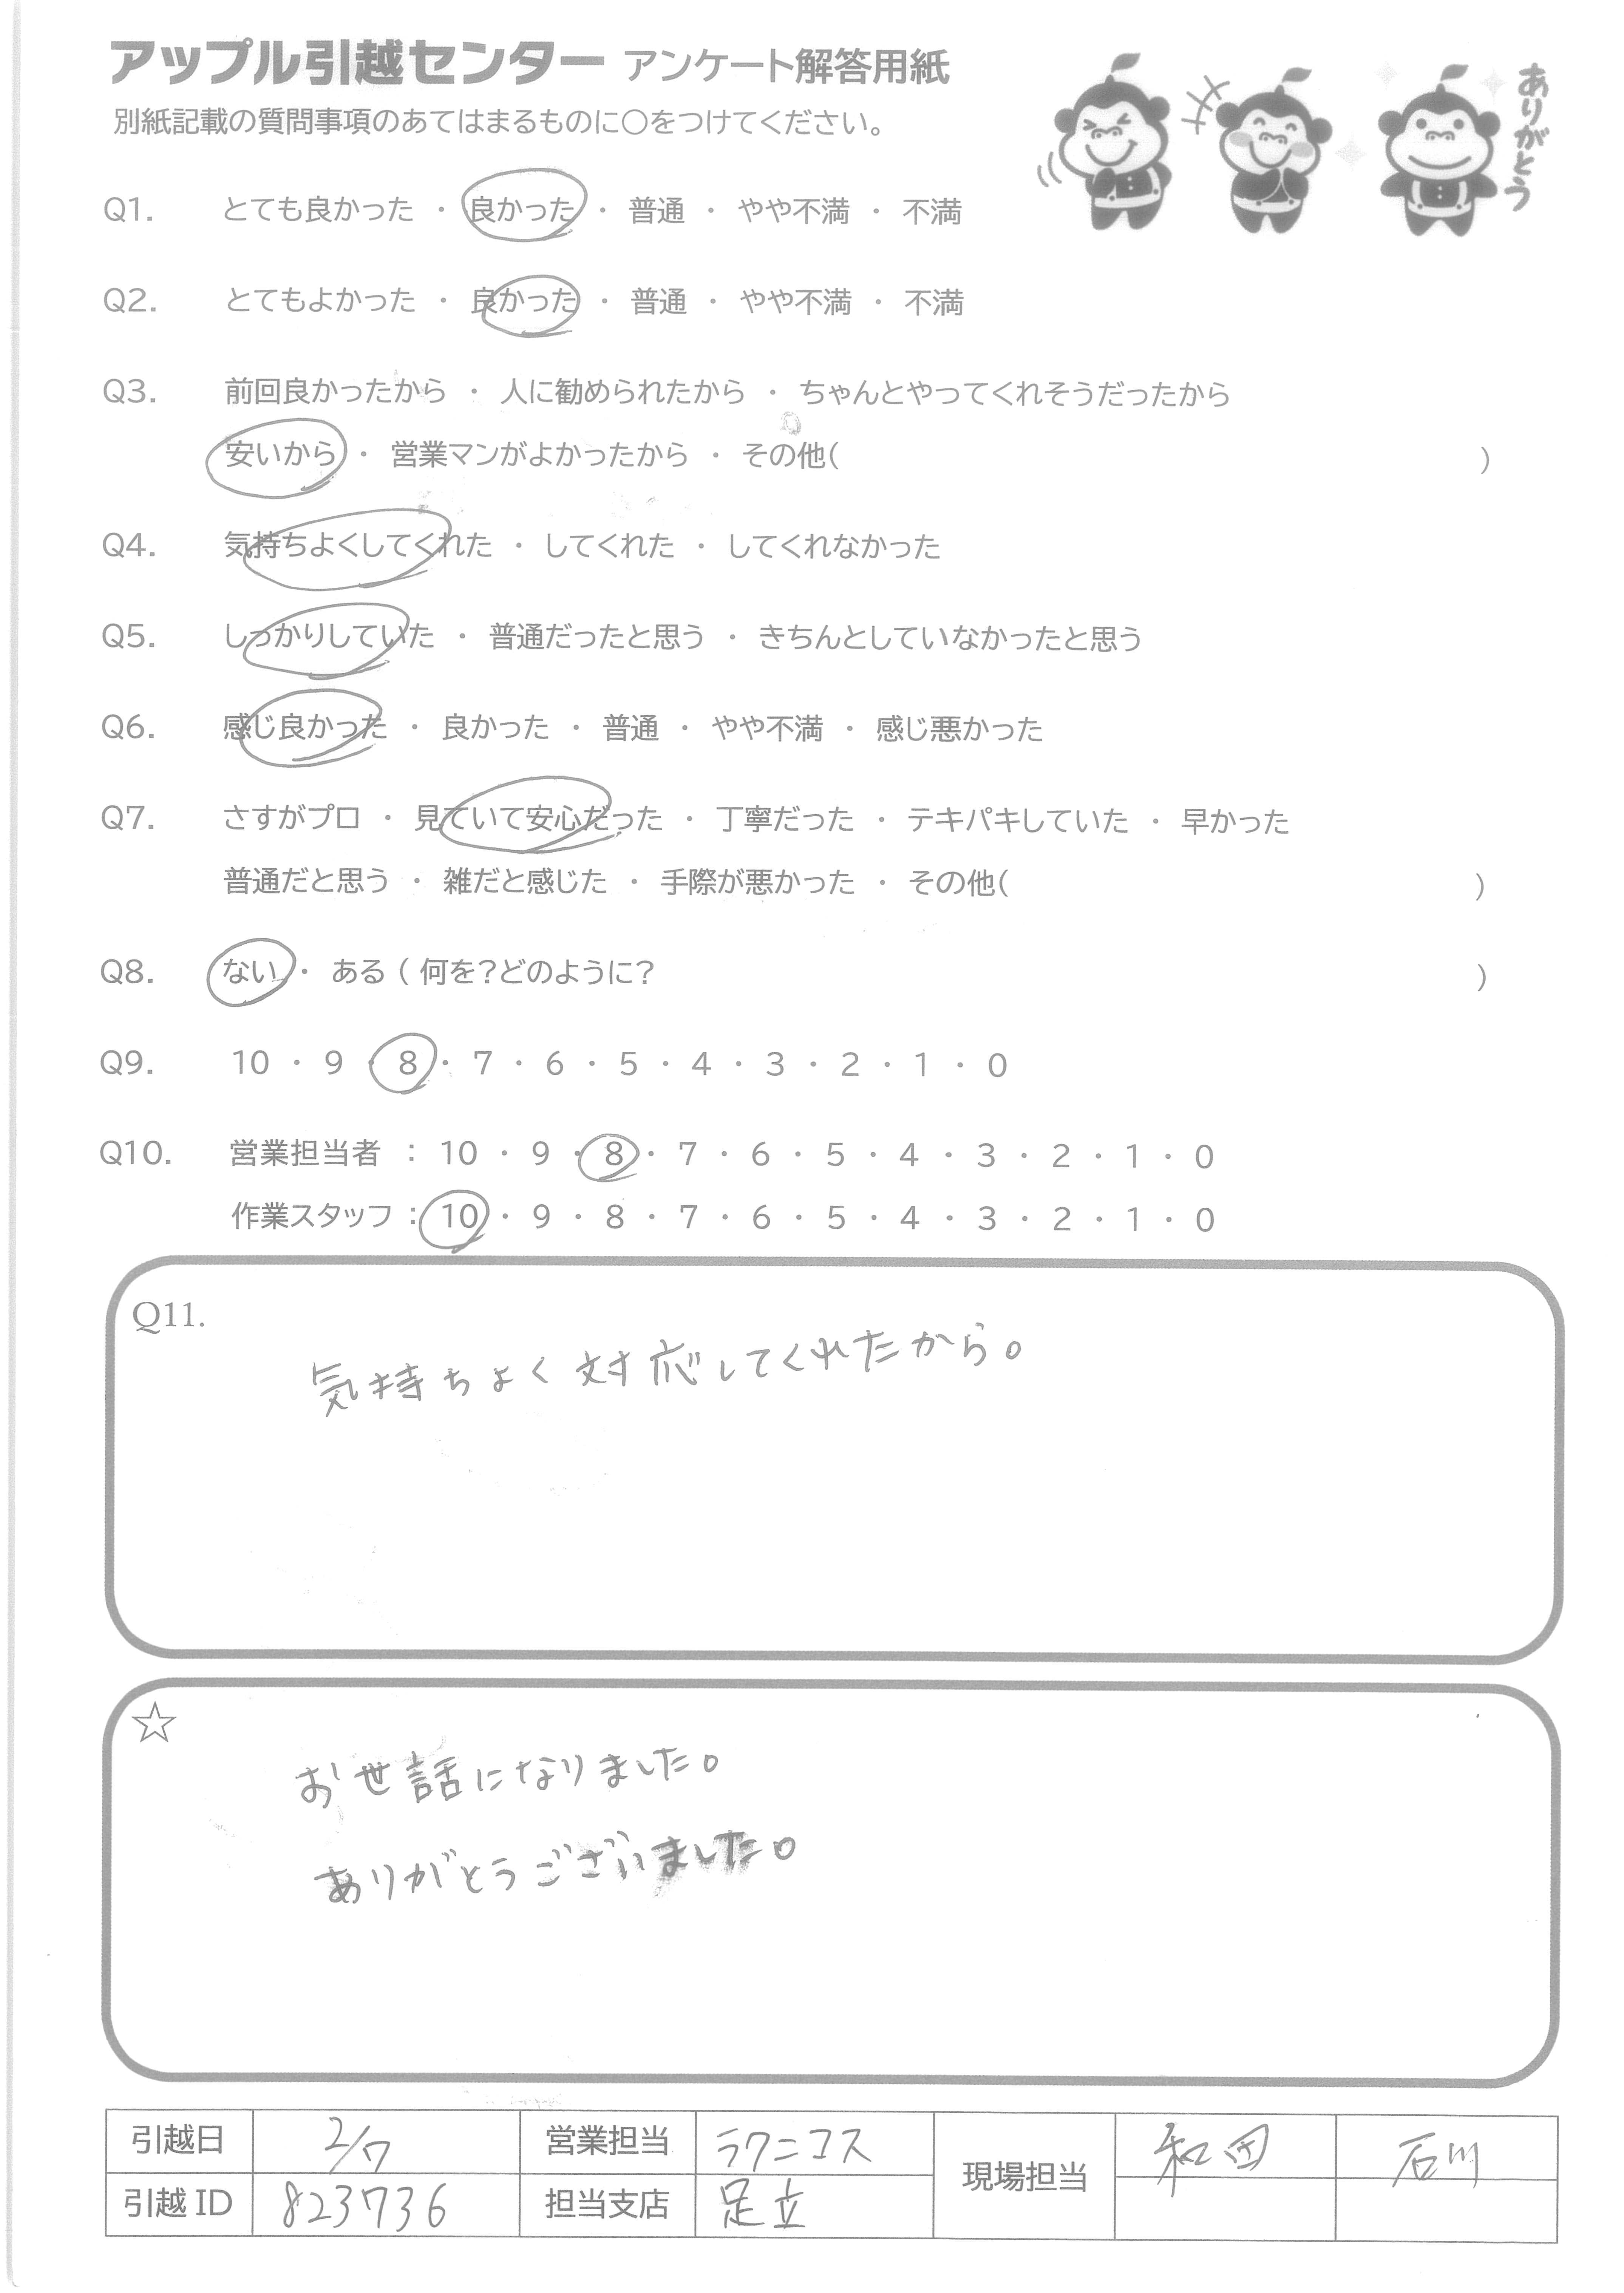 アップル引越センター アンケート解答用紙
別紙記載の質問事項のあてはまるものに○をつけてください。
ありがとう
Q1. とても良かった ・ 良かった ・ 普通 ・ やや不満 ・ 不満
Q2. とてもよかった ・ 良かった ・ 普通 ・ やや不満 ・ 不満
Q3. 前回良かったから ・ 人に勧められたから ・ ちゃんとやってくれそうだったから
安いから ・ 営業マンがよかったから ・ その他( )
Q4. 気持ちよくしてくれた ・ してくれた ・ してくれなかった
Q5. しっかりしていた ・ 普通だったと思う ・ きちんとしていなかったと思う
Q6. 感じ良かった ・ 良かった ・ 普通 ・ やや不満 ・ 感じ悪かった
Q7. さすがプロ ・ 見ていて安心だった ・ 丁寧だった ・ テキパキしていた ・ 早かった
普通だと思う ・ 雑だと感じた ・ 手際が悪かった ・ その他( )
Q8. ない ・ ある ( 何を?どのように? )
Q9. 10 ・ 9 ・ 8 ・ 7 ・ 6 ・ 5 ・ 4 ・ 3 ・ 2 ・ 1 ・ 0
Q10. 営業担当者 : 10 ・ 9 ・ 8 ・ 7 ・ 6 ・ 5 ・ 4 ・ 3 ・ 2 ・ 1 ・ 0
作業スタッフ : 10 ・ 9 ・ 8 ・ 7 ・ 6 ・ 5 ・ 4 ・ 3 ・ 2 ・ 1 ・ 0
Q11.
気持ちよく対応してくれたから。
☆
お世話になりました。
ありがとうございました。
引越日 2/7 営業担当 ラクニコス 現場担当 和田 石川
引越ID 823736 担当支店 足立